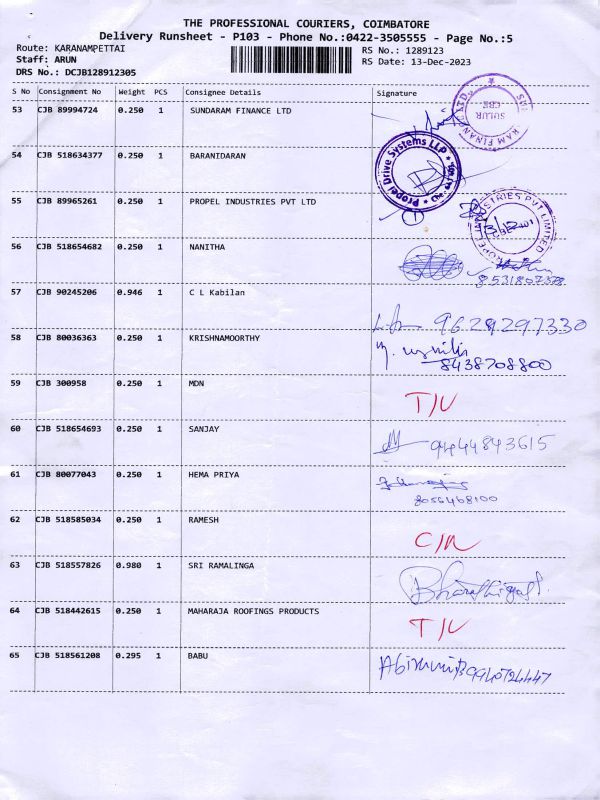 THE PROFESSIONAL COURIERS, COIMBATORE
Delivery Runsheet - P103 - Phone No.:0422-3505555 - Page No.:5
Route: KARANAMPETTAI
RS No.: 1289123
Staff: ARUN
RS Date: 13-Dec-2023
DRS No.: DCJB128912305
S No Consignment No Weight PCS Consignee Details Signature
53 CJB 89994724 0.250 1 SUNDARAM FINANCE LTD
SULUR
CBE
54 CJB 518634377 0.250 1 BARANIDARAN
Propel Drive Systems LLP
55 CJB 89965261 0.250 1 PROPEL INDUSTRIES PVT LTD
PROPEL INDUSTRIES PVT LIMITED
56 CJB 518654682 0.250 1 NANITHA
8531807378
57 CJB 90245206 0.946 1 C L Kabilan
9629297330
58 CJB 80036363 0.250 1 KRISHNAMOORTHY
8438708800
59 CJB 300958 0.250 1 MDN
T/U
60 CJB 518654693 0.250 1 SANJAY
9444843615
61 CJB 80077043 0.250 1 HEMA PRIYA
8056468100
62 CJB 518585034 0.250 1 RAMESH
63 CJB 518557826 0.980 1 SRI RAMALINGA
64 CJB 518442615 0.250 1 MAHARAJA ROOFINGS PRODUCTS
T/U
65 CJB 518561208 0.295 1 BABU